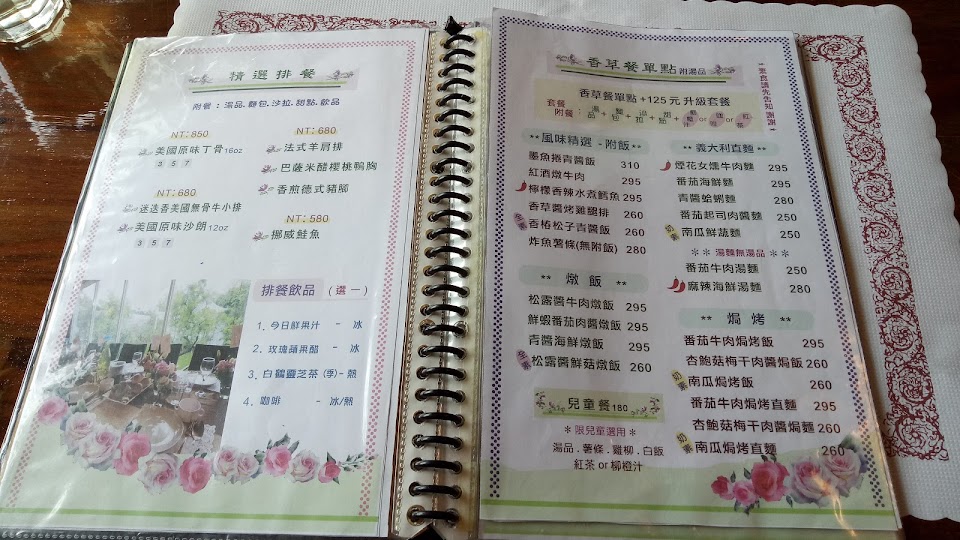 精選排餐
附餐：湯品.麵包.沙拉.甜點.飲品
NT:850
美國原味丁骨16oz
3 5 7
NT:680
迷迭香美國無骨牛小排
美國原味沙朗12oz
3 5 7
NT:680
法式羊肩排
巴薩米醋櫻桃鴨胸
香煎德式豬腳
NT:580
挪威鮭魚
排餐飲品 (選一)
1. 今日鮮果汁 - 冰
2. 玫瑰蘋果醋 - 冰
3. 白鶴靈芝茶(季)- 熱
4. 咖啡 - 冰/熱
香草餐單點 附湯品
！素食請先告知謝謝！
香草餐單點+125元升級套餐
套餐附餐：
** 風味精選 - 附飯 **
墨魚捲青醬飯 310
紅酒燉牛肉 295
檸檬香辣水煮鱈魚 295
香草醬烤雞腿排 260
全素 香椿松子青醬飯 260
炸魚薯條(無附飯) 280
** 燉飯 **
松露醬牛肉燉飯 295
鮮蝦番茄肉醬燉飯 295
青醬海鮮燉飯 295
全素 松露醬鮮菇燉飯 260
兒童餐 180
＊限兒童選用＊
湯品.薯條.雞柳.白飯
紅茶 or 柳橙汁
** 義大利直麵 **
煙花女燻牛肉麵 295
番茄海鮮麵 295
青醬蛤蜊麵 280
番茄起司肉醬麵 250
奶素 南瓜鮮蔬麵 250
＊＊湯麵無湯品＊＊
番茄牛肉湯麵 250
麻辣海鮮湯麵 280
** 焗烤 **
番茄牛肉焗烤飯 295
杏鮑菇梅干肉醬焗飯 260
奶素 南瓜焗烤飯 260
番茄牛肉焗烤直麵 295
杏鮑菇梅干肉醬焗麵 260
奶素 南瓜焗烤直麵 260